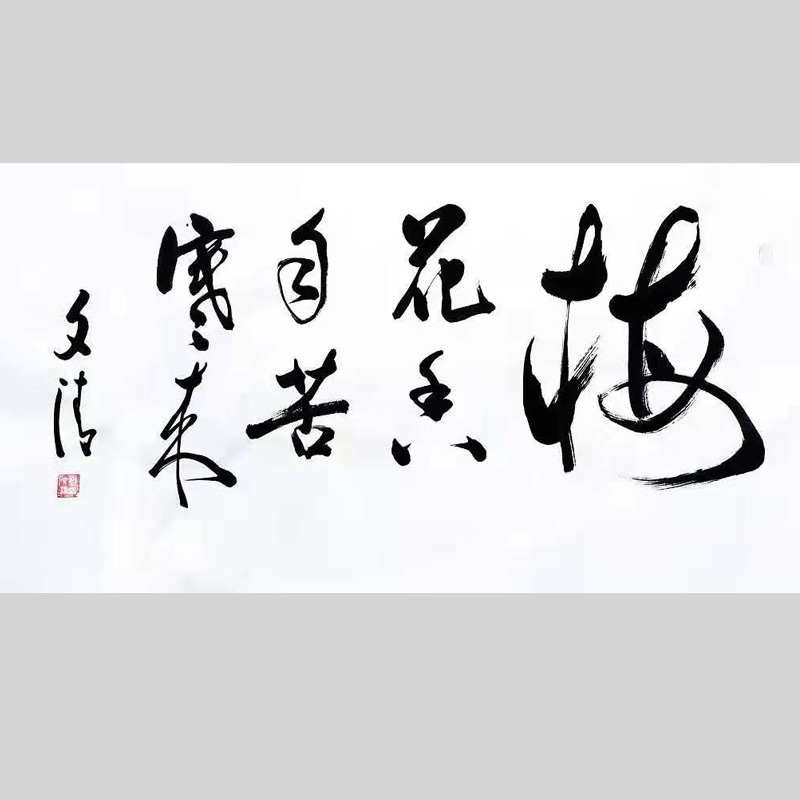 梅
花香
自苦
寒来
文清